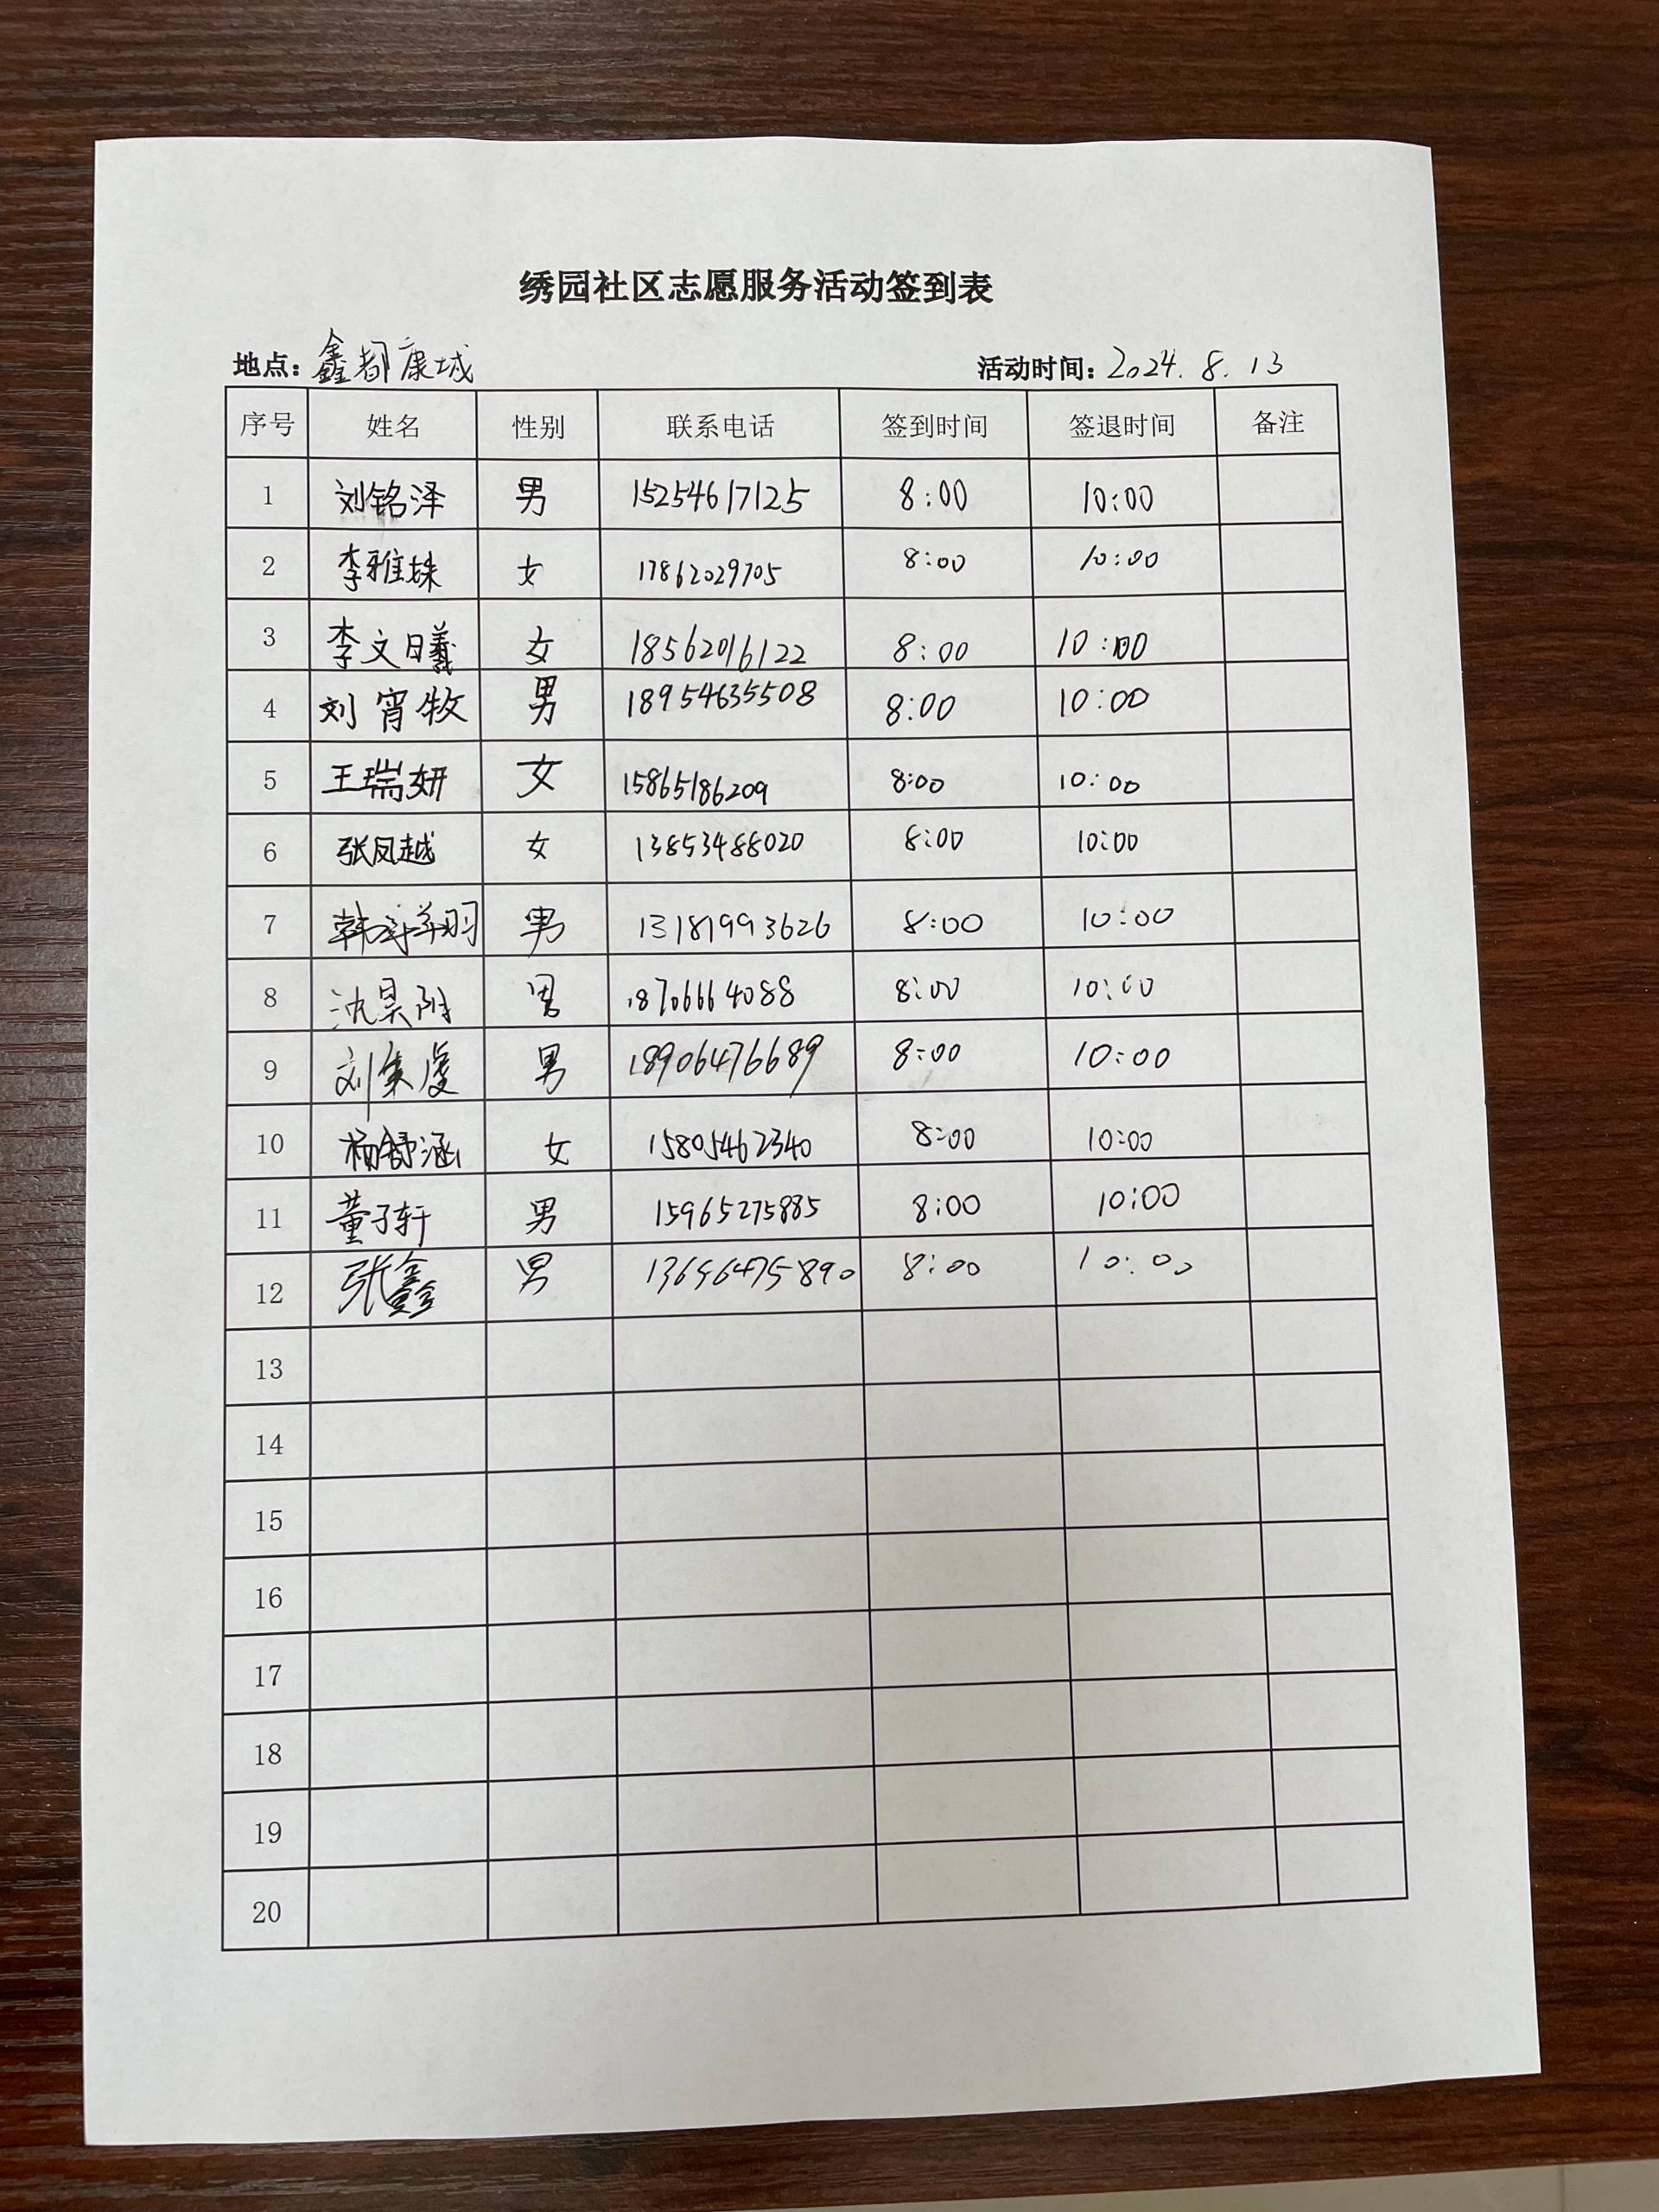 绣园社区志愿服务活动签到表
地点：鑫都康城 活动时间：2024.8.13
序号 姓名 性别 联系电话 签到时间 签退时间 备注
1 刘铭泽 男 15254617125 8:00 10:00
2 李雅姝 女 17862029705 8:00 10:00
3 李文曦 女 18562016122 8:00 10:00
4 刘宵牧 男 18954635508 8:00 10:00
5 王瑞妍 女 15865186209 8:00 10:00
6 张凤越 女 13853488020 8:00 10:00
7 男 13181993626 8:00 10:00
8 男 18706664088 8:00 10:00
9 男 18906476689 8:00 10:00
10 杨舒涵 女 15805462340 8:00 10:00
11 董子轩 男 15965275885 8:00 10:00
12 张鑫 男 13656475890 8:00 10:00
13
14
15
16
17
18
19
20